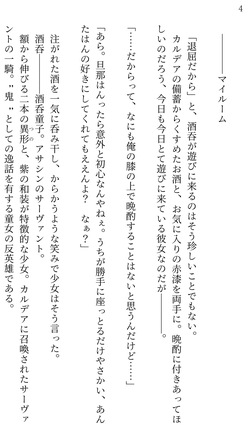 4
――――マイルーム
「退屈だから」と、酒呑が遊びに来るのはそう珍しいことでもない。
カルデアの備蓄からくすめたお酒と、お気に入りの赤漆を両手に。晩酌に付きあってほ
しいのだろう、今日も今日とて遊びに来ている彼女なのだが――――。
「……だからって、なにも俺の膝の上で晩酌することはないと思うんだけど……」
「あら。旦那はんったら意外と初心なんやねぇ。うちが勝手に座っとるだけやさかい、あん
たはんの好きにしてくれてもええんよ?　なぁ?」
注がれた酒を一気に呑み干し、からかうような笑みで少女はそう言った。
酒呑――――酒呑童子。アサシンのサーヴァント。
額から伸びる二本の異形と、紫の和装が特徴的な少女。カルデアに召喚されたサーヴァ
ントの一騎。〝鬼〟としての逸話を有する童女の反英雄である。